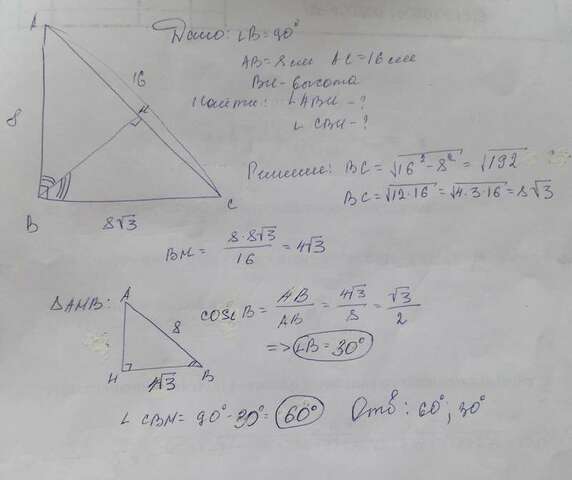 A
Дано: ∠B=90°
AB=8см AC=16см
16
BH-высота
H
Найти: ∠ABH-?
8
∠CBH-?
Решение: BC=√16²-8²=√192
BC=√12·16=√4·3·16=8√3
B
C
8√3
BH=8·8√3/16=4√3
ΔAHB:
A
8
cos∠B=AB/AB=4√3/8=√3/2
=>∠B=30°
H
4√3
B
∠CBH=90°-30°=60°
Отв: 60°; 30°